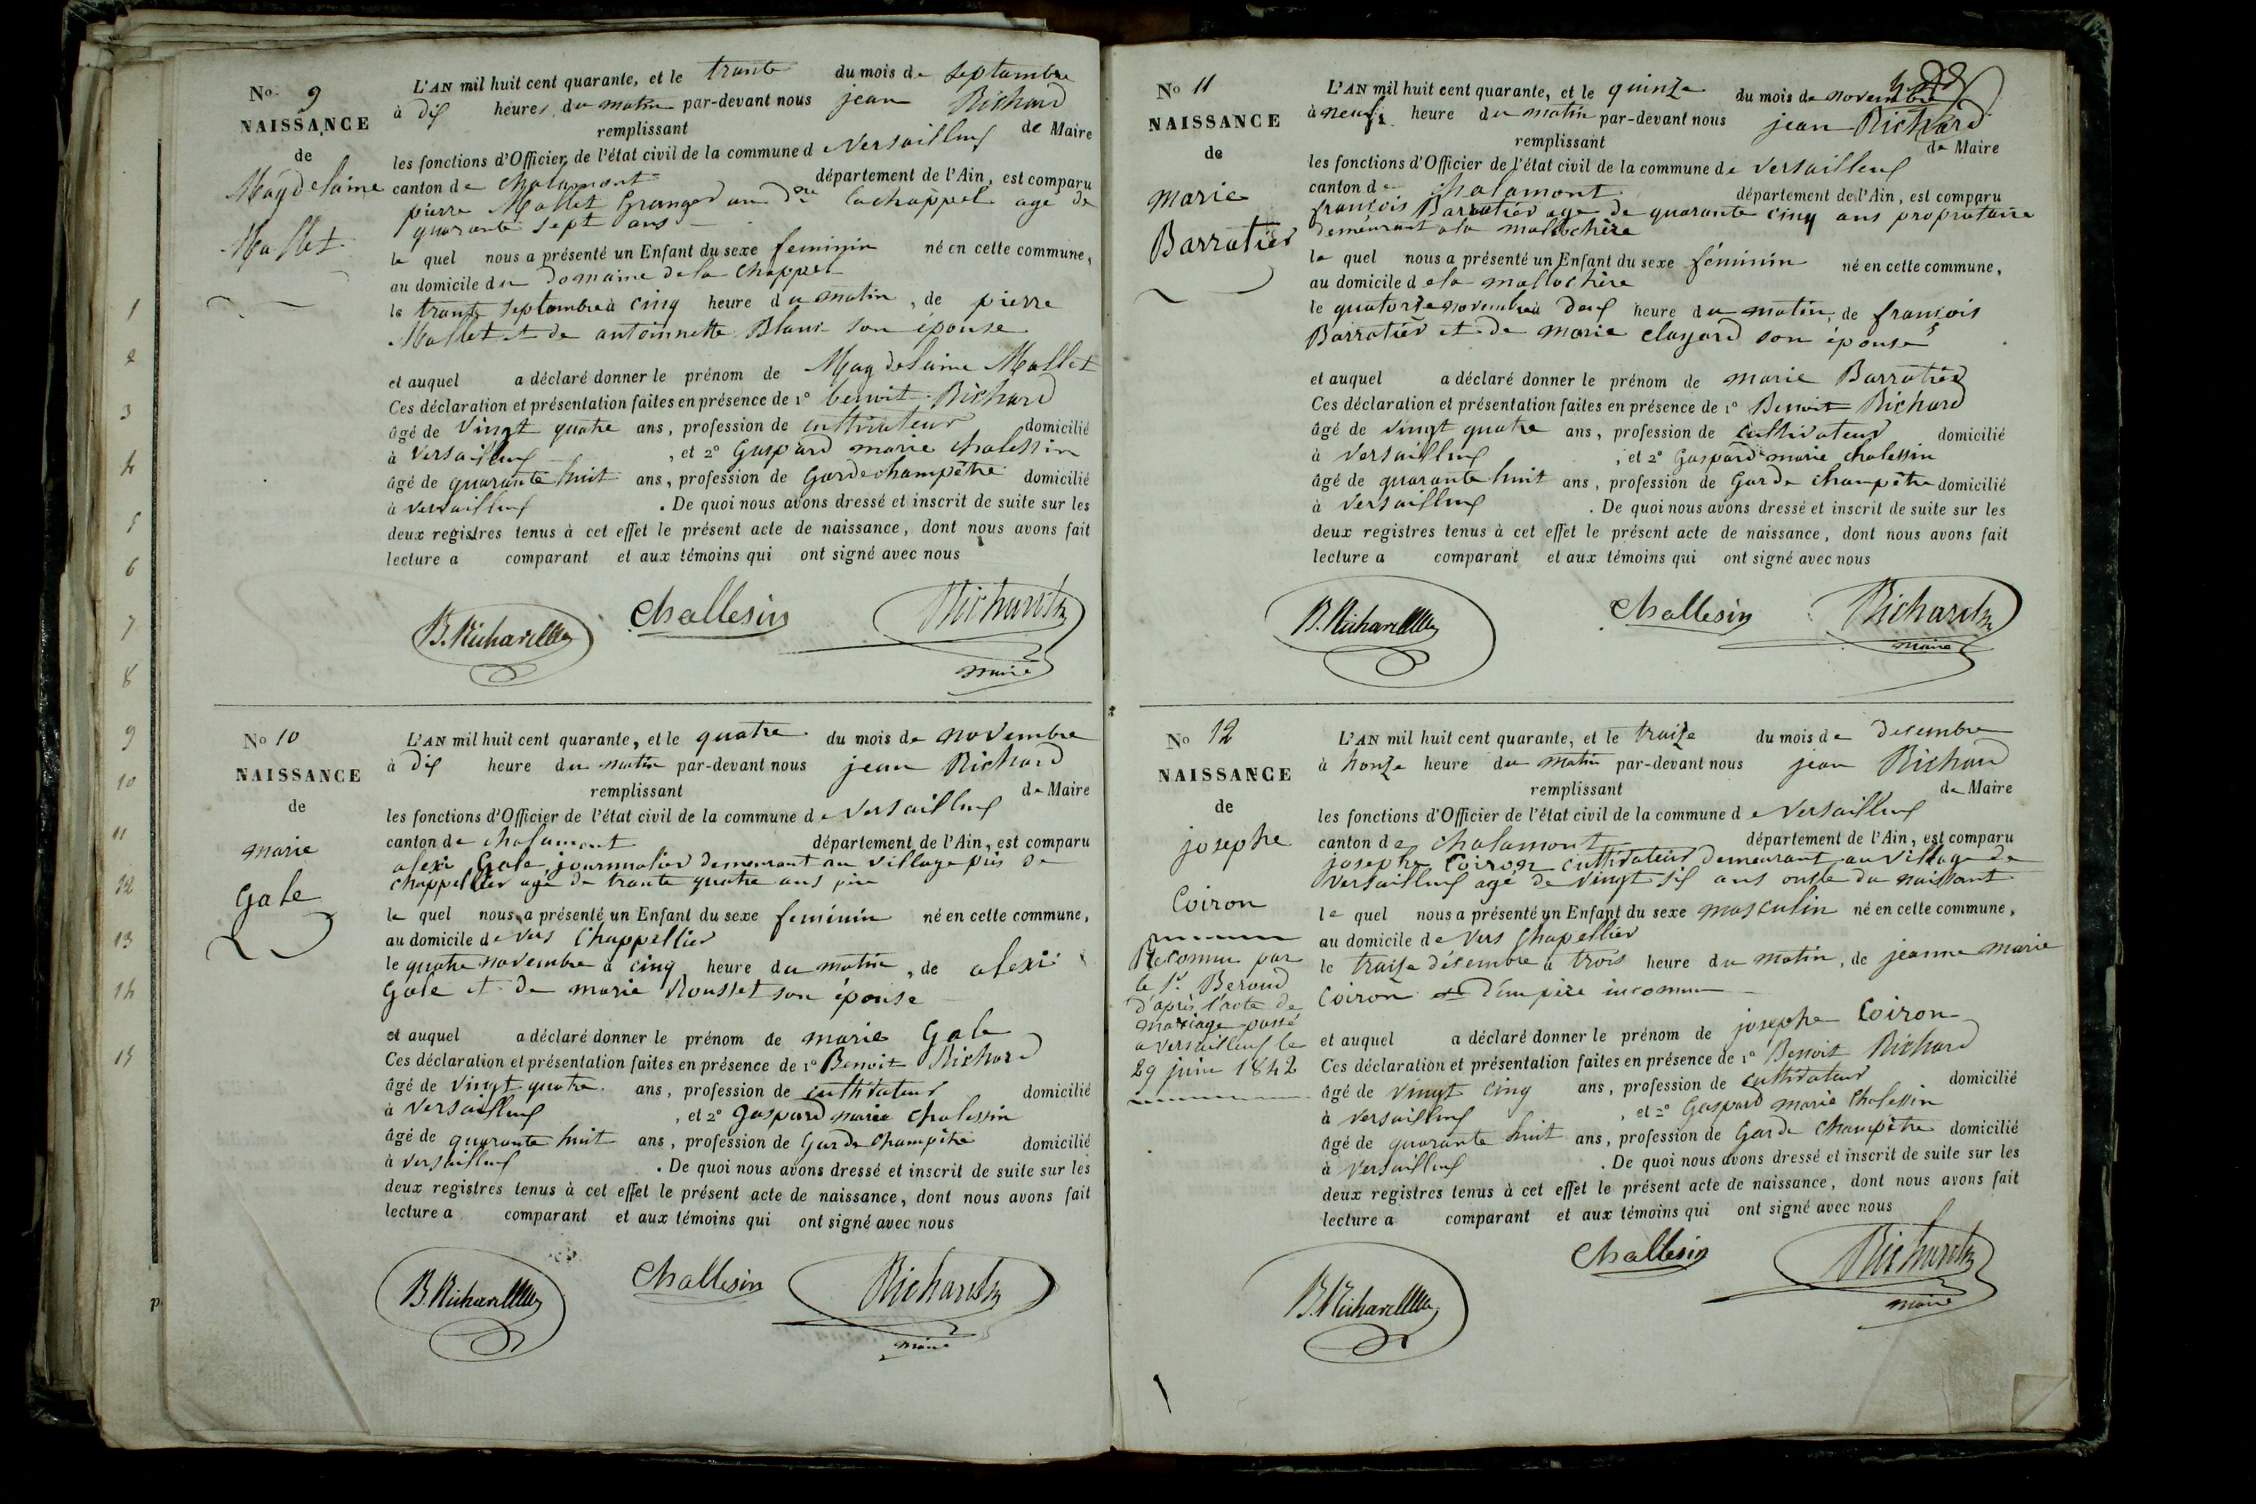 1
2
3
4
5
6
7
8
9
10
11
12
13
14
15
p
No 9
NAISSANCE
de
Magdelaine
Mallet
L'AN mil huit cent quarante, et le trante du mois de septambre
à dix heures du matin par-devant nous jean Richard
remplissant de Maire
les fonctions d'Officier de l'état civil de la commune de Versailleux
canton de chalamont département de l'Ain, est comparu
pierre Mallet Granger au dne lachappel agé de
quarante sept ans
le quel nous a présenté un Enfant du sexe feminin né en cette commune,
au domicile du Domaine de la Chappel
le trante septambre à cinq heure du matin, de pierre
Mallet et de antoinnette Blanc son épouse
et auquel a déclaré donner le prénom de Magdelaine Mallet
Ces déclaration et présentation faites en présence de 1° benoit Richard
âgé de vingt quatre ans, profession de cultivateur domicilié
à Versailleux, et 2° Gaspard marie chalessin
âgé de quarante huit ans, profession de Garde champêtre domicilié
à versailleux. De quoi nous avons dressé et inscrit de suite sur les
deux registres tenus à cet effet le présent acte de naissance, dont nous avons fait
lecture a comparant et aux témoins qui ont signé avec nous
B. Richard Challesin Richard
maire
No 10
NAISSANCE
de
marie
Gale
L'AN mil huit cent quarante, et le quatre du mois de novembre
à dix heure du matin par-devant nous jean Richard
remplissant de Maire
les fonctions d'Officier de l'état civil de la commune de Versailleux
canton de chalamont département de l'Ain, est comparu
alexi Gale journnalier demeurant au village près de
chappellier agé de trante quatre ans père
le quel nous a présenté un Enfant du sexe feminin né en cette commune,
au domicile de vers Chappellier
le quatre novembre à cinq heure du matin, de alexi
Gale et de marie Rousset son épouse
et auquel a déclaré donner le prénom de marie Gale
Ces déclaration et présentation faites en présence de 1° Benoit Richard
âgé de vingt quatre ans, profession de cultivateur domicilié
à Versailleux, et 2° Gaspard marie chalessin
âgé de quarante huit ans, profession de Garde Champêtre domicilié
à versailleux. De quoi nous avons dressé et inscrit de suite sur les
deux registres tenus à cet effet le présent acte de naissance, dont nous avons fait
lecture a comparant et aux témoins qui ont signé avec nous
B. Richard Challesin Richard
maire
No 11
NAISSANCE
de
marie
Barratier
L'AN mil huit cent quarante, et le quinze du mois de novembre
à neuf heure du matin par-devant nous jean Richard
remplissant de Maire
les fonctions d'Officier de l'état civil de la commune de versailleux
canton de chalamont département de l'Ain, est comparu
françois Barratier agé de quarante cinq ans propriataire
demeurant a la mallochère
le quel nous a présenté un Enfant du sexe féminin né en cette commune,
au domicile de la mallochère
le quatorze novembre à deux heure du matin, de françois
Barratier et de marie clayard son épouse
et auquel a déclaré donner le prénom de marie Barratier
Ces déclaration et présentation faites en présence de 1° Benoit Richard
âgé de vingt quatre ans, profession de cultivateur domicilié
à Versailleux, et 2° Gaspard marie chalessin
âgé de quarante huit ans, profession de Garde champêtre domicilié
à Versailleux. De quoi nous avons dressé et inscrit de suite sur les
deux registres tenus à cet effet le présent acte de naissance, dont nous avons fait
lecture a comparant et aux témoins qui ont signé avec nous
B. Richard Challesin Richard
maire
No 12
NAISSANCE
de
josephe
Coiron
Reconnu par
le Sr Beroud
d'après l'acte de
mariage passé
a versailleux le
29 juin 1842
L'AN mil huit cent quarante, et le traize du mois de desembre
à honze heure du matin par-devant nous jean Richard
remplissant de Maire
les fonctions d'Officier de l'état civil de la commune de Versailleux
canton de chalamont département de l'Ain, est comparu
josephe Coiron cultivateur demeurant au village de
versailleux agé de vingt six ans oncle du naissant
le quel nous a présenté un Enfant du sexe masculin né en cette commune,
au domicile de Vers Chapellier
le traize désembre à trois heure du matin, de jeanne marie
Coiron et d'un père inconnu
et auquel a déclaré donner le prénom de josephe Coiron
Ces déclaration et présentation faites en présence de 1° Benoit Richard
âgé de vingt cinq ans, profession de cultivateur domicilié
à Versailleux, et 2° Gaspard marie Chalessin
âgé de quarante huit ans, profession de Garde Champêtre domicilié
à Versailleux. De quoi nous avons dressé et inscrit de suite sur les
deux registres tenus à cet effet le présent acte de naissance, dont nous avons fait
lecture a comparant et aux témoins qui ont signé avec nous
B. Richard Challesin Richard
maire